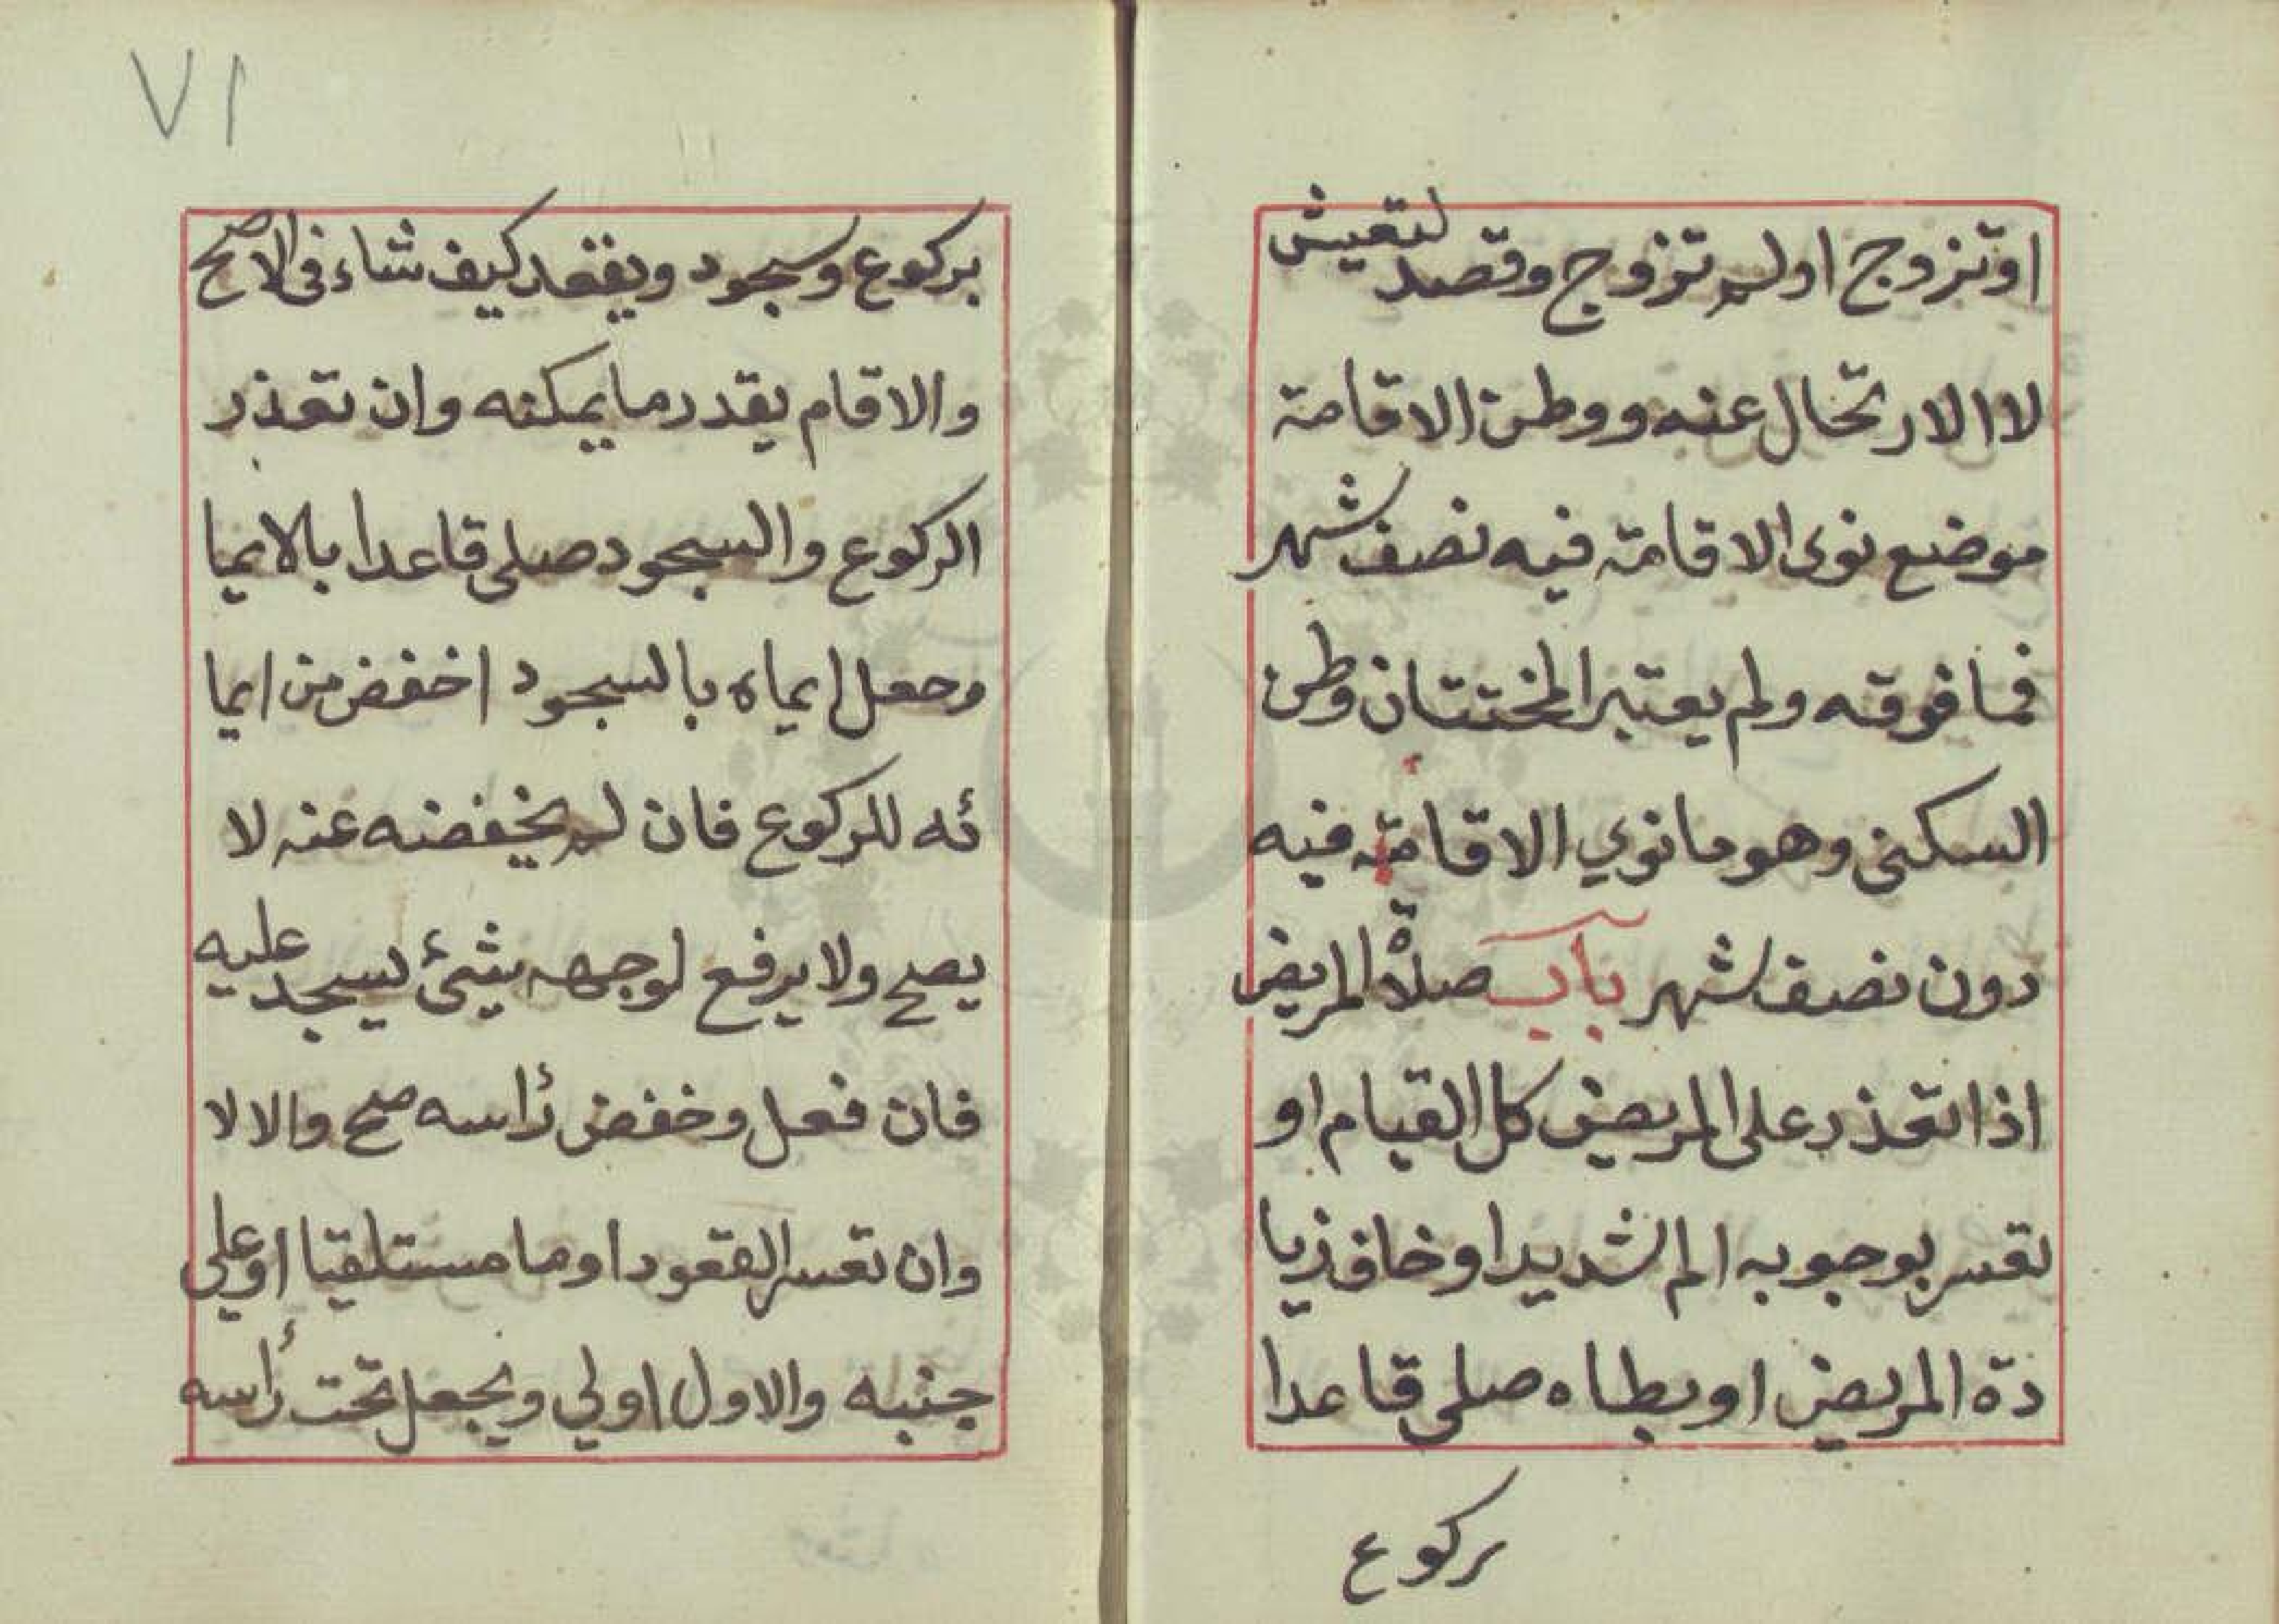 اوتزوج اولم تزوج وقصد لتعيش
لا الارتحال عنه ووطن الاقامة
موضع نوى الاقامة فيه نصف شهر
فما فوقه ولم يعتبر المختتان وطن
السكنى وهو ما نوي الاقامة فيه
دون نصف شهر باب صلاة المريض
اذا تعذر على المريض كل القيام او
تعسر بوجوبه الم شديد اوخاف زيا
دة المريض اوبطاه صلى قاعدا
بركوع
٧١
بركوع وسجود ويقعد كيف شاء فى الاصح
والاقام يقدر ما يمكنه وان تعذر
الركوع والسجود صلى قاعدا بالايما
وجعل ايماه بالسجود اخفض من ايما
ئه للركوع فان لم يخفضه عنه لا
يصح ولا يرفع لوجهه شئ يسجد عليه
فان فعل وخفض رأسه صح والا لا
وان تعسر القعود اوما مستلقيا اوعلى
جنبه والاول اولي ويجعل تحت رأسه